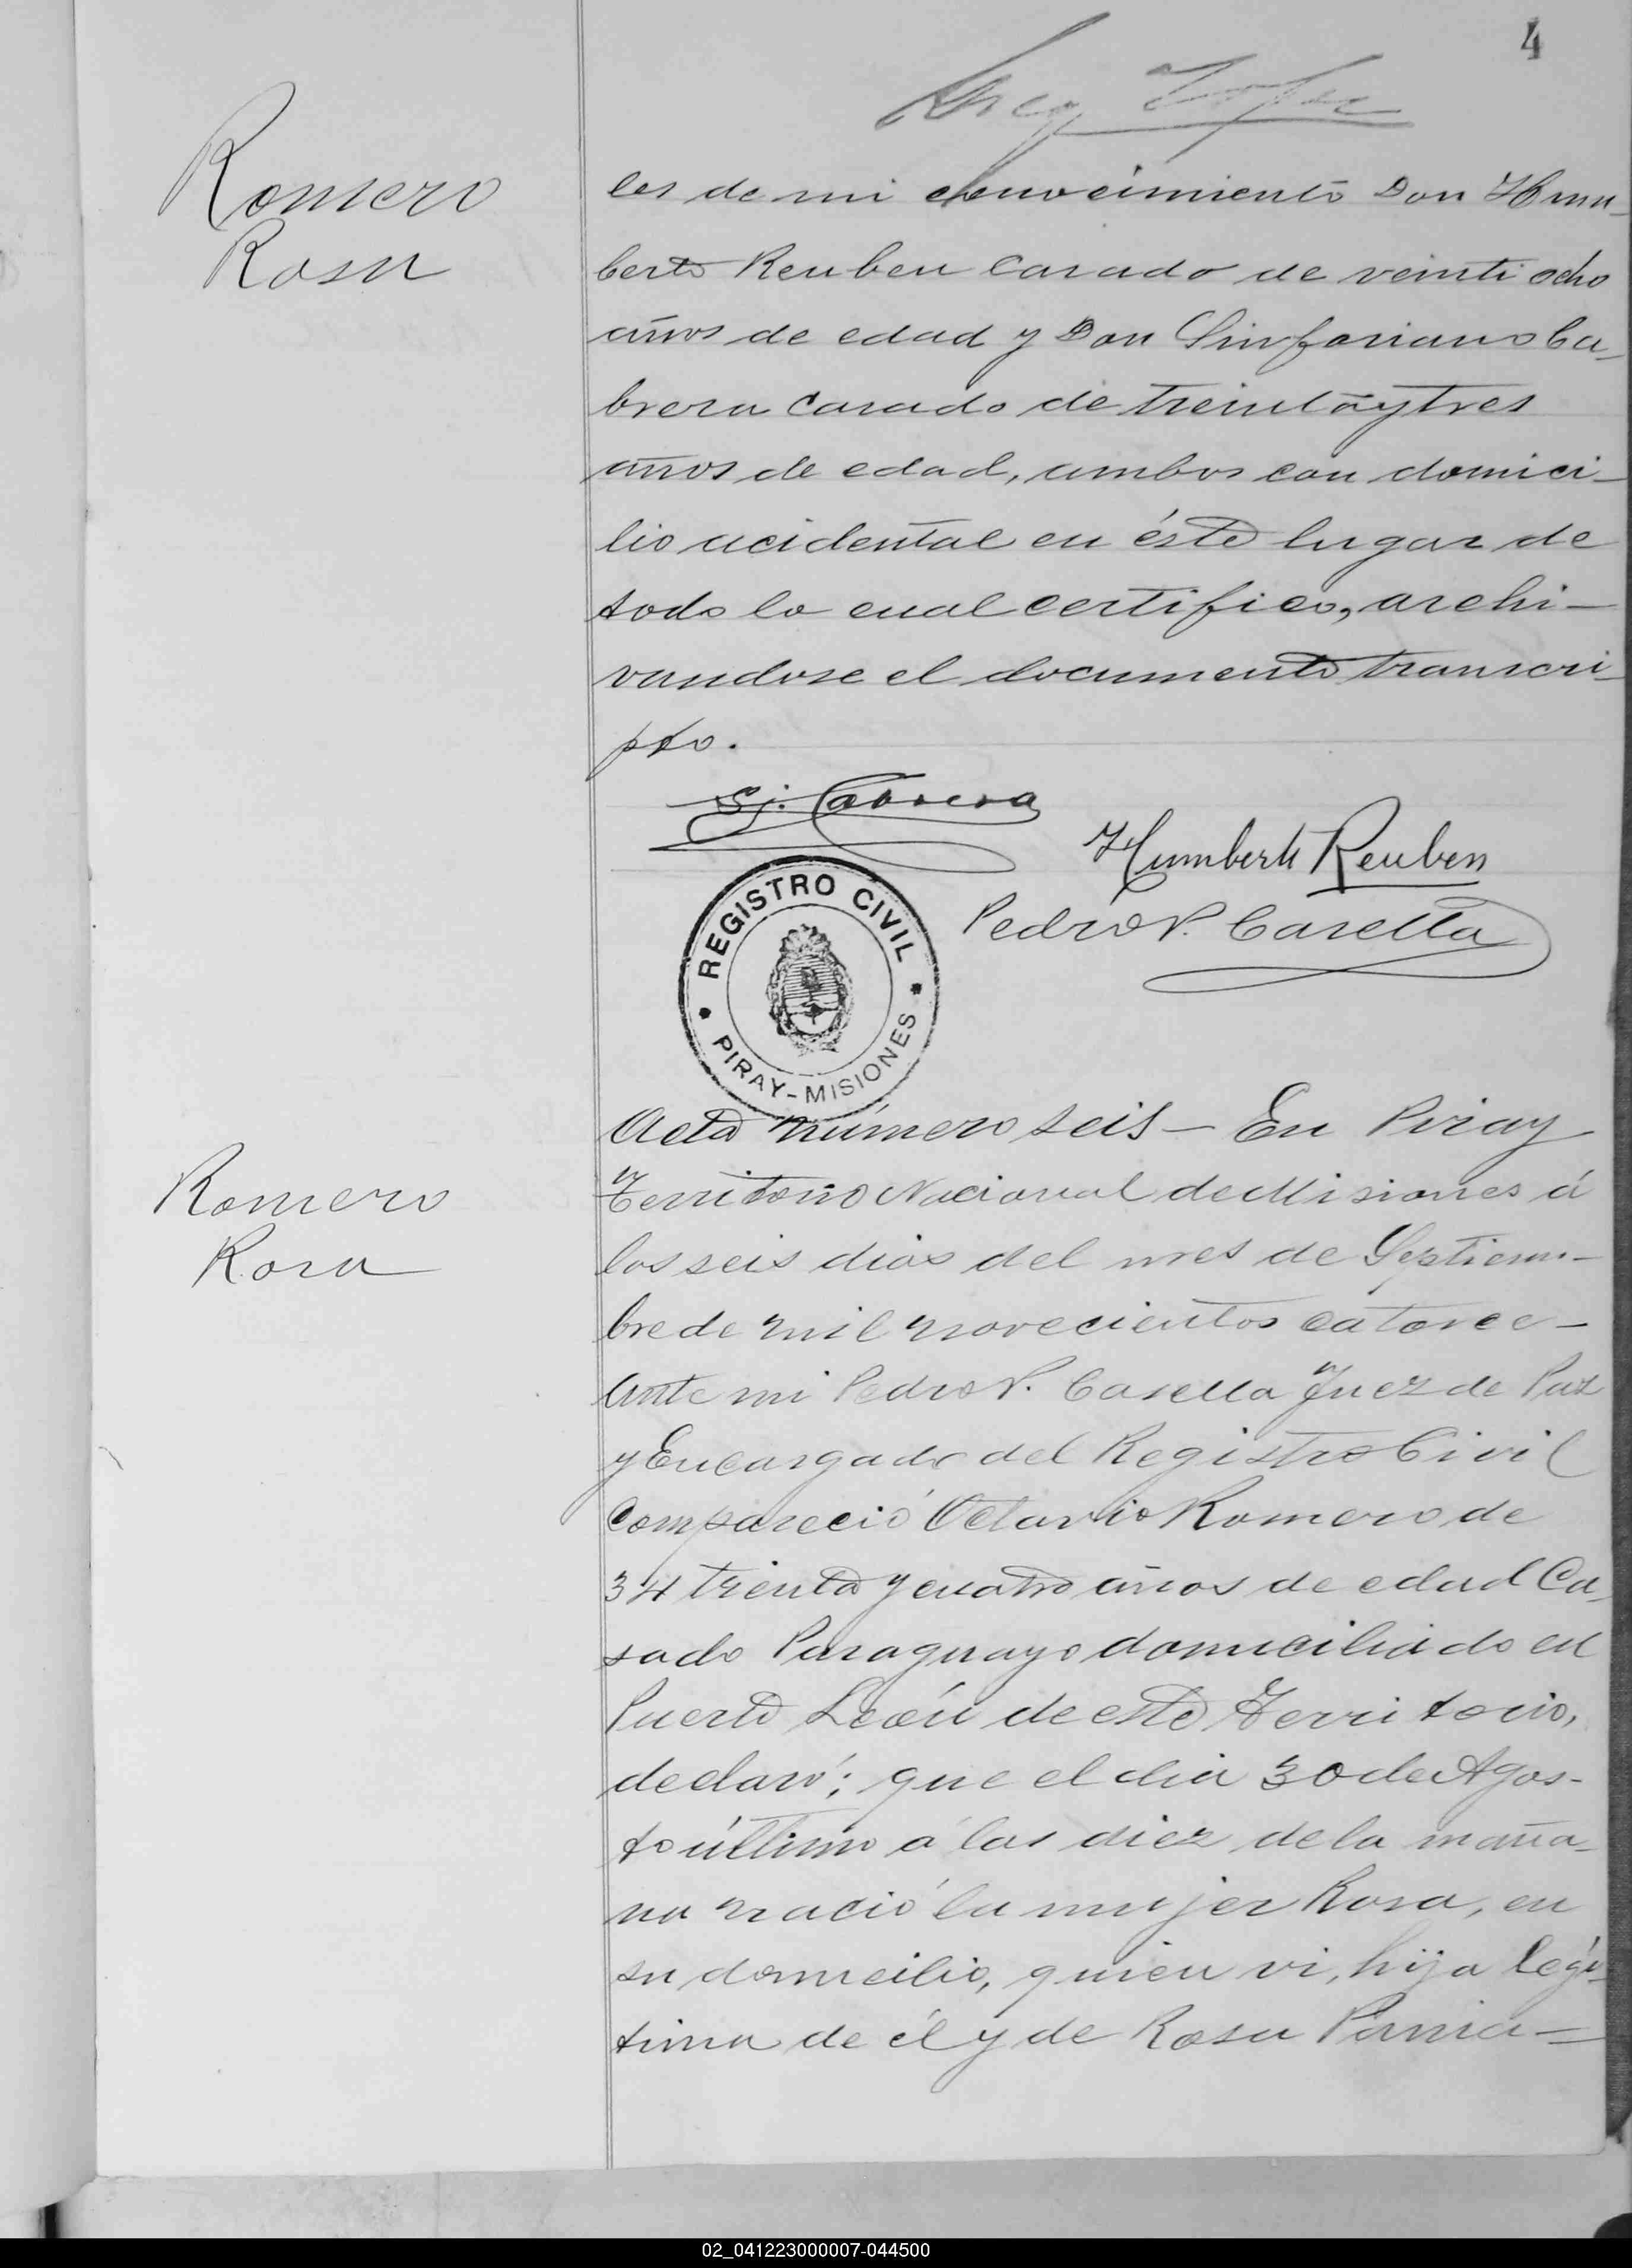 4
Romero
Rosa
les de mi conocimiento Don Hum-
berto Reuben casado de veinti ocho
años de edad y Don Sinforiano Ca-
brera casado de treinta y tres
años de edad, ambos con domici-
lio acidental en éste lugar de
todo lo cual certifico, archi-
vandose el documento transcri-
pto.
S. Cabrera
Humberto Reuben
Pedro P. Casella
REGISTRO CIVIL
PIRAY-MISIONES
Romero
Rosa
Acta número seis - En Piray
Territorio Nacional de Misiones á
los seis dias del mes de Septiem-
bre de mil novecientos catorce -
Ante mi Pedro P. Casella Juez de Paz
y Encargado del Registro Civil
compareció Octavio Romero de
34 trienta y cuatro años de edad Ca-
sado Paraguayo domiciliado en
Puerto León de este Territorio,
declaró; que el dia 30 de Agos-
to último á las diez de la maña-
na nació la mujer Rosa, en
su domicilio, quien vi, hija legi-
tima de él y de Rosa
02_041223000007-044500